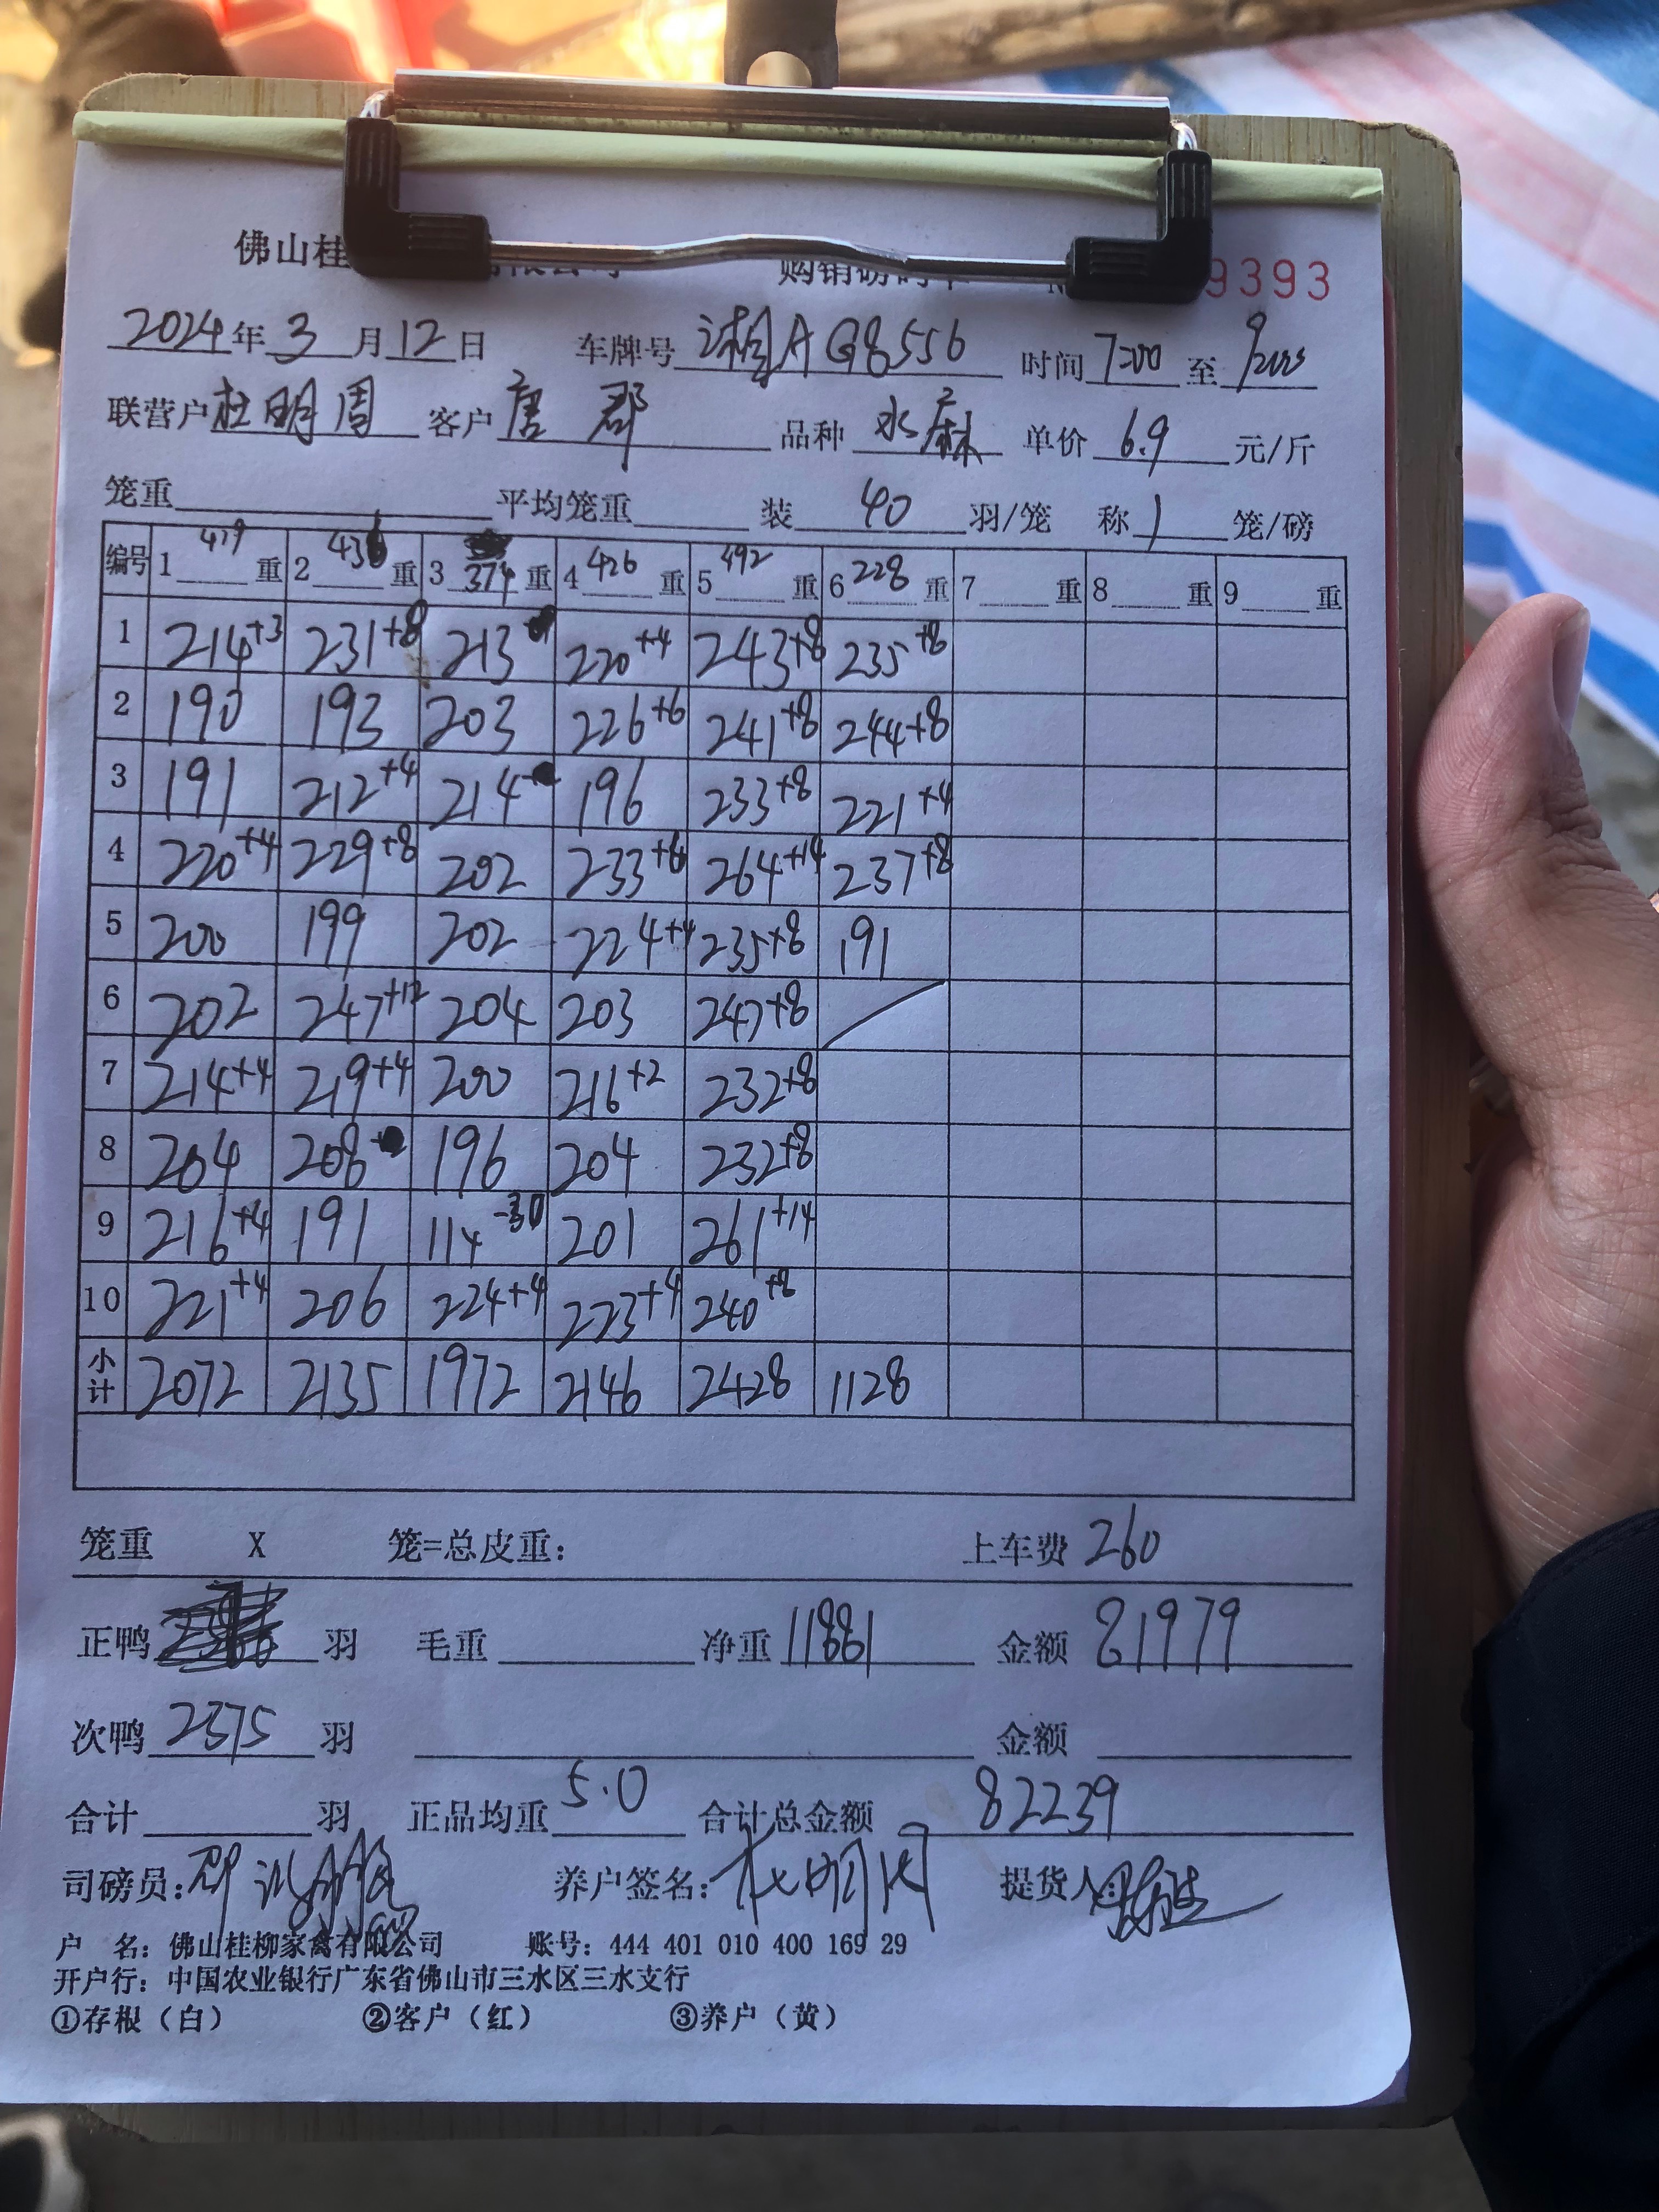 佛山桂 购销磅码单 9393
2024年3月12日 车牌号 湘A G8556 时间 7:00 至 9:00
联营户 杜明周 客户 唐郡 品种 水麻 单价 6.9 元/斤
笼重 平均笼重 装 40 羽/笼 称 1 笼/磅
编号 1 419 重 2 436 重 3 374 重 4 426 重 5 492 重 6 228 重 7 重 8 重 9 重
1 214+3 231+8 213 220+4 243+8 235+8
2 190 193 203 226+6 241+8 244+8
3 191 212+4 214 196 233+8 221+4
4 220+4 229+8 202 233+6 264+14 237+8
5 200 199 202 224+4 235+8 191
6 202 247+12 204 203 247+8
7 214+4 219+4 200 216+2 232+8
8 204 208 196 204 232+8
9 216+4 191 114-30 201 261+14
10 221+4 206 224+4 223+4 240+8
小计 2072 2135 1972 2146 2428 1128
笼重 X 笼=总皮重: 上车费 260
正鸭 羽 毛重 净重 11881 金额 81979
次鸭 2375 羽 金额
合计 羽 正品均重 5.0 合计总金额 82239
司磅员: 养户签名: 杜明周 提货人:
户 名: 佛山桂柳家禽有限公司 账号: 444 401 010 400 169 29
开户行: 中国农业银行广东省佛山市三水区三水支行
①存根（白） ②客户（红） ③养户（黄）